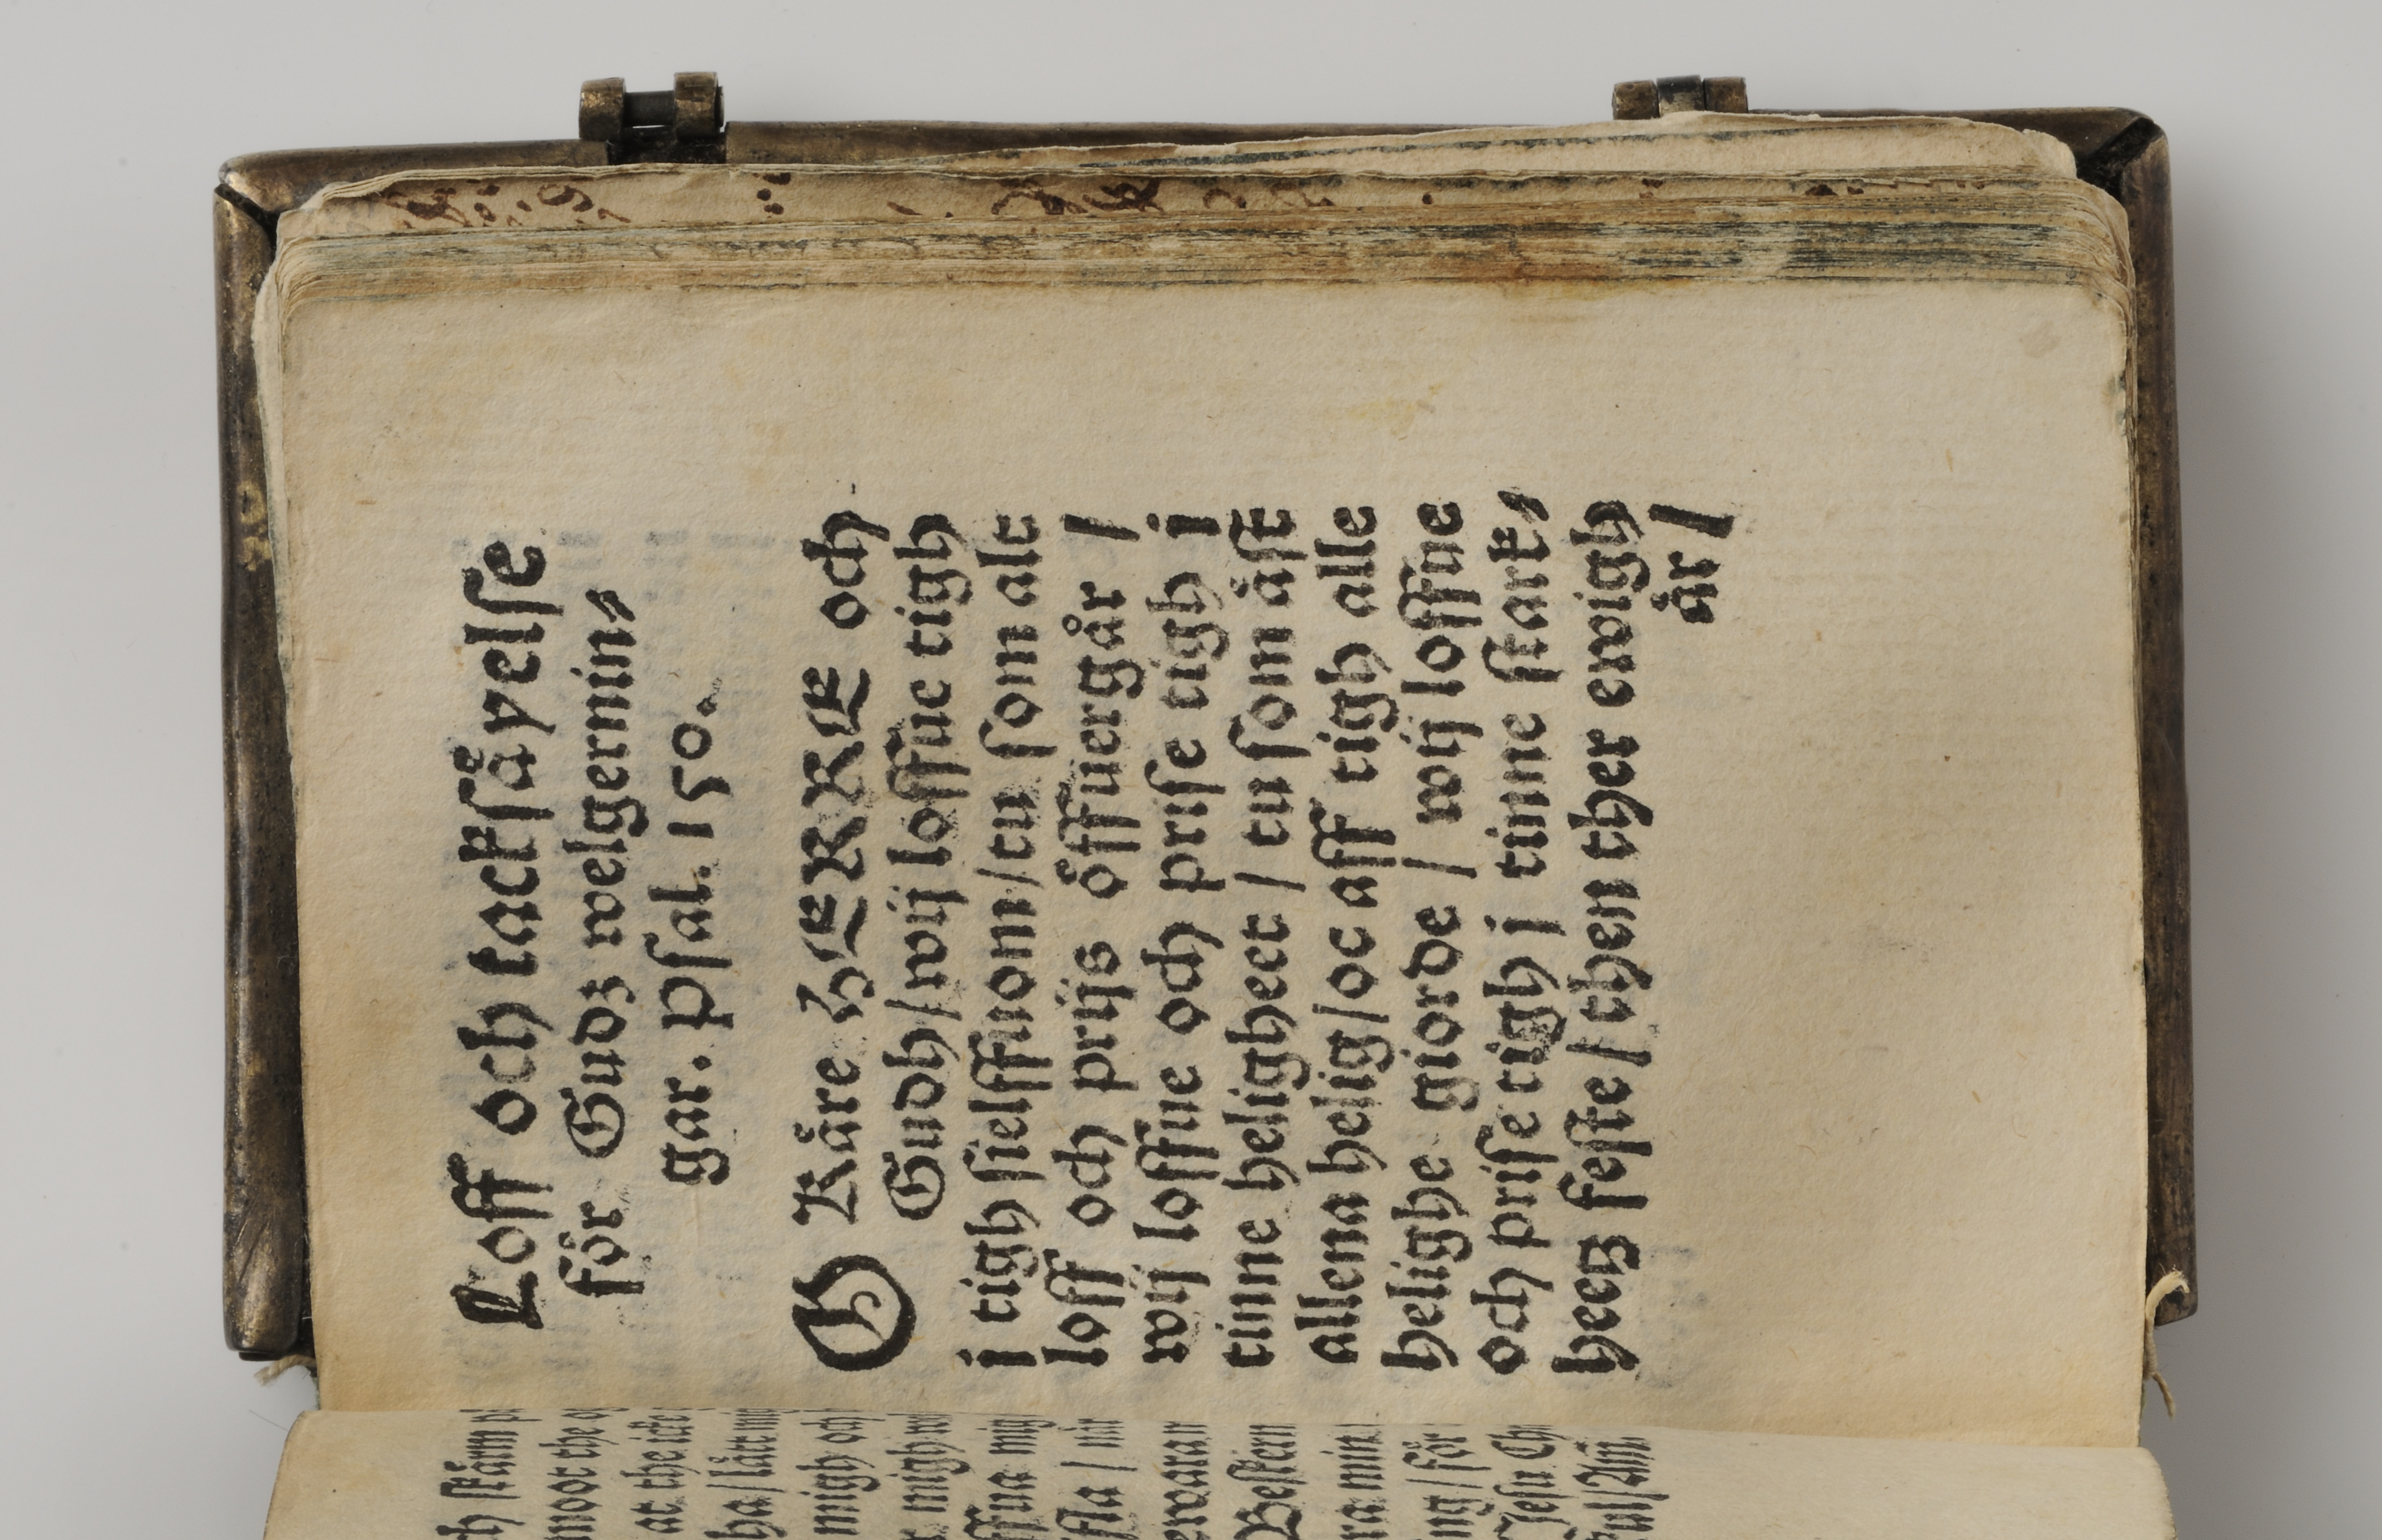 ſkärm
moot the
at the icke
migh och
migh
ewaran
min
för
Jeſu
Loff och tackſäyelſe
för Gudz welgernin⸗
gar. Pſal. 150.
O Käre HERRE och
Gudh/wij loffue tigh
i tigh ſielffuom/tu ſom alt
loff och prijs öffuergår /
wij loffue och priſe tigh i
tinne heligheet / tu ſom äſt
allena helig/oc aff tigh alle
helighe giorde / wij loffue
och priſe tigh i tinne ſtark⸗
heetz feſte/then ther ewigh
är/